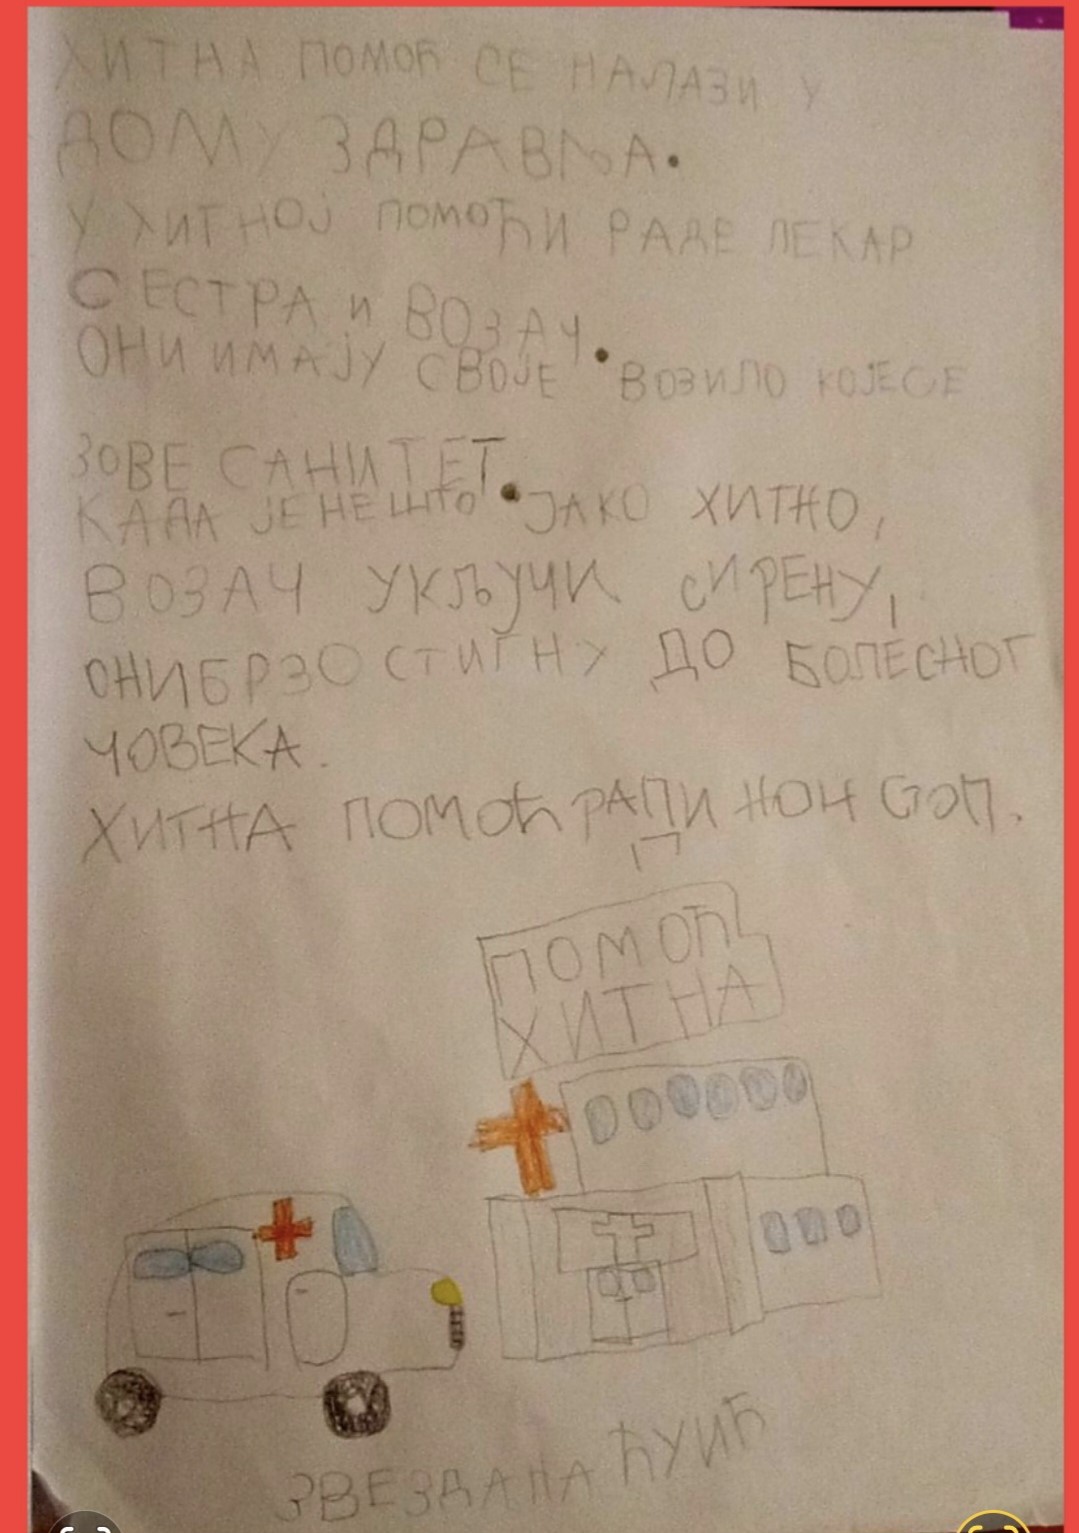 ХИТНА ПОМОЋ СЕ НАЛАЗИ У
ДОМУ ЗДРАВЉА.
У ХИТНОЈ ПОМОЋИ РАДЕ ЛЕКАР
СЕСТРА И ВОЗАЧ.
ОНИ ИМАЈУ СВОЈЕ ВОЗИЛО КОЈЕСЕ
ЗОВЕ САНИТЕТ.
КАДА ЈЕНЕШТО ЈАКО ХИТНО,
ВОЗАЧ УКЉУЧИ СИРЕНУ,
ОНИБРЗО СТИГНУ ДО БОЛЕСНОГ
ЧОВЕКА.
ХИТНА ПОМОЋ РАДИ НОН СОП.
ПОМОЋ
ХИТНА
ЗВЕЗДАНА ЋУИЋ